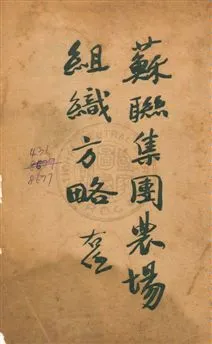 蘇聯集團農場
組織方略
431
8677